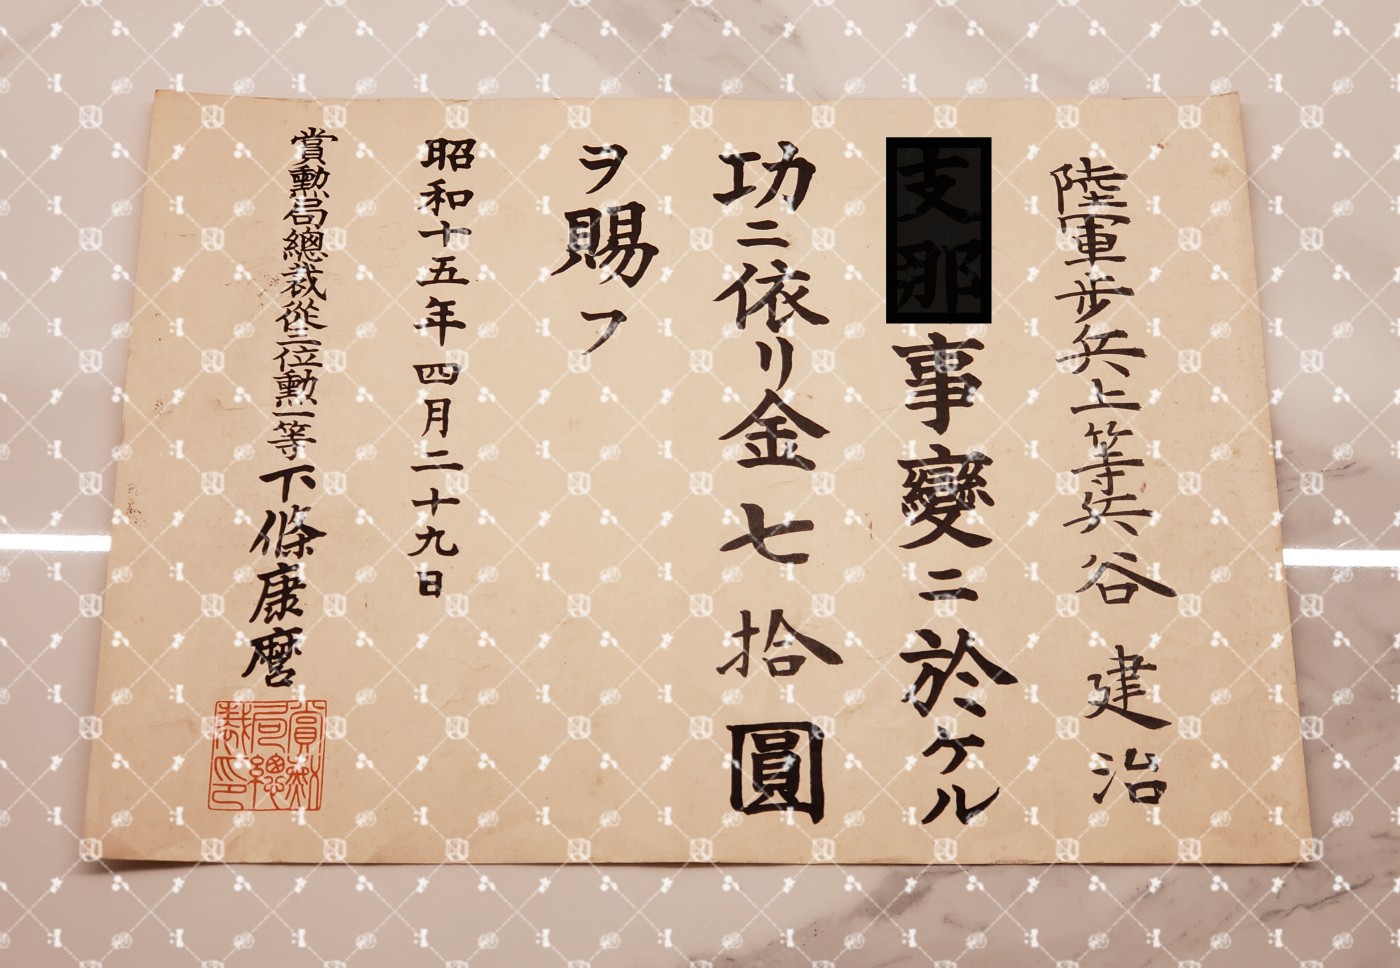 陸軍步兵上等兵谷建治
支那事變ニ於ケル
功ニ依リ金七拾圓
ヲ賜フ
昭和十五年四月二十九日
賞勳局總裁從三位勳一等下條康麿
賞勳局總裁印